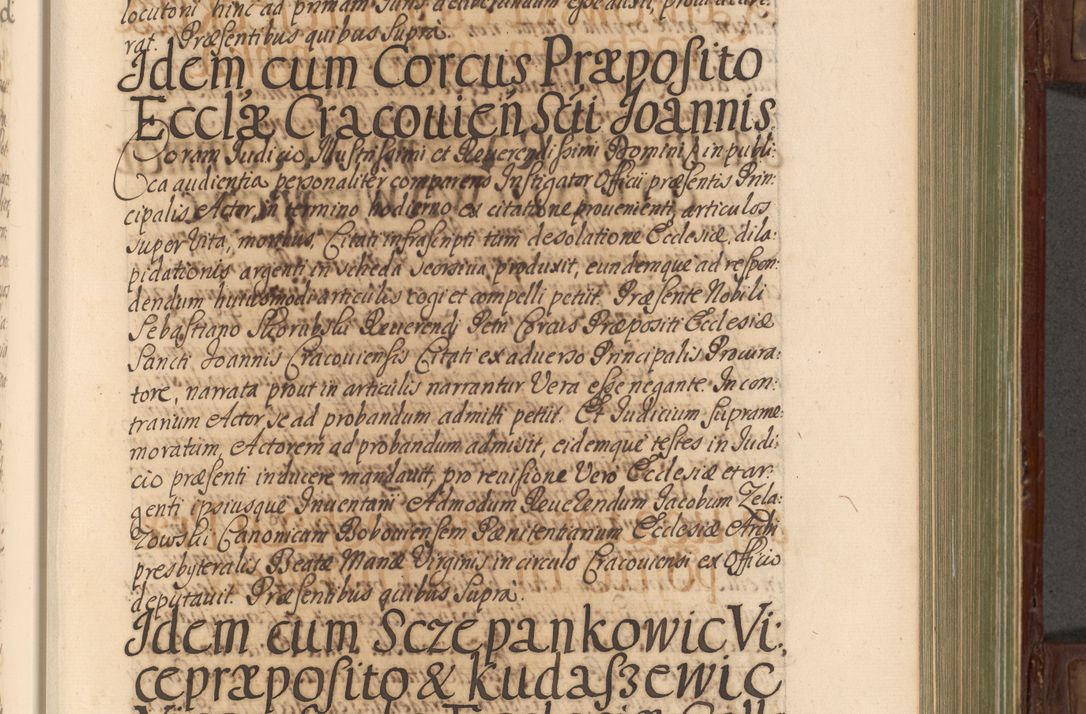 locutorii hinc ad primam Juris deliberandum esse duxit, procurave:
rat. Præsentibus quibus supra.
Jdem cum Corcus Præposito
Ecclæ Cracouień Scti Joannis.
Coram Judicio Illustrissimi et Reuerendissimi Domini in publi:
ca audientia personaliter comparens Instigator Officii præsentis Prin:
cipalis Actor, in termino hodierno ex citatione proueniente articulos
super Vita, moribus, Citati infrascripti tum desolatione Ecclesiæ, dila:
pidationis argenti in scheda seorsiua produxit, eundemque ad respon:
dendum huiusmodi articulis cogi et compelli petiit. Præsente Nobili
Sebastiano Skorubski Reuerendi Petri Corcus Præpositi Ecclesiæ
Sancti Joannis Cracouiensis Citati ex aduerso Principalis Procura:
tore, narrata prout in articulis narrantur Vera esse negante. In con:
trarium Actor, se ad probandum admitti petiit. Et Judicium supramé:
moratum, Actorem ad probandum admisit, eidemque testes in Judi:
cio præsenti inducere mandauit, pro reuisione Vero Ecclesiæ et ar:
genti ipsiusque Inuentarii Admodum Reuerendum Jacobum Zela:
zowski Canonicum Bobouiensem Pænitentiarium Ecclesiæ Archi
presbyteralis Beatæ Mariæ Virginis in circulo Cracouiensi ex Officio
deputauit. Præsentibus quibus supra.
Jdem cum Sczepankowic Vi:
cepræposito & Kudaszewic